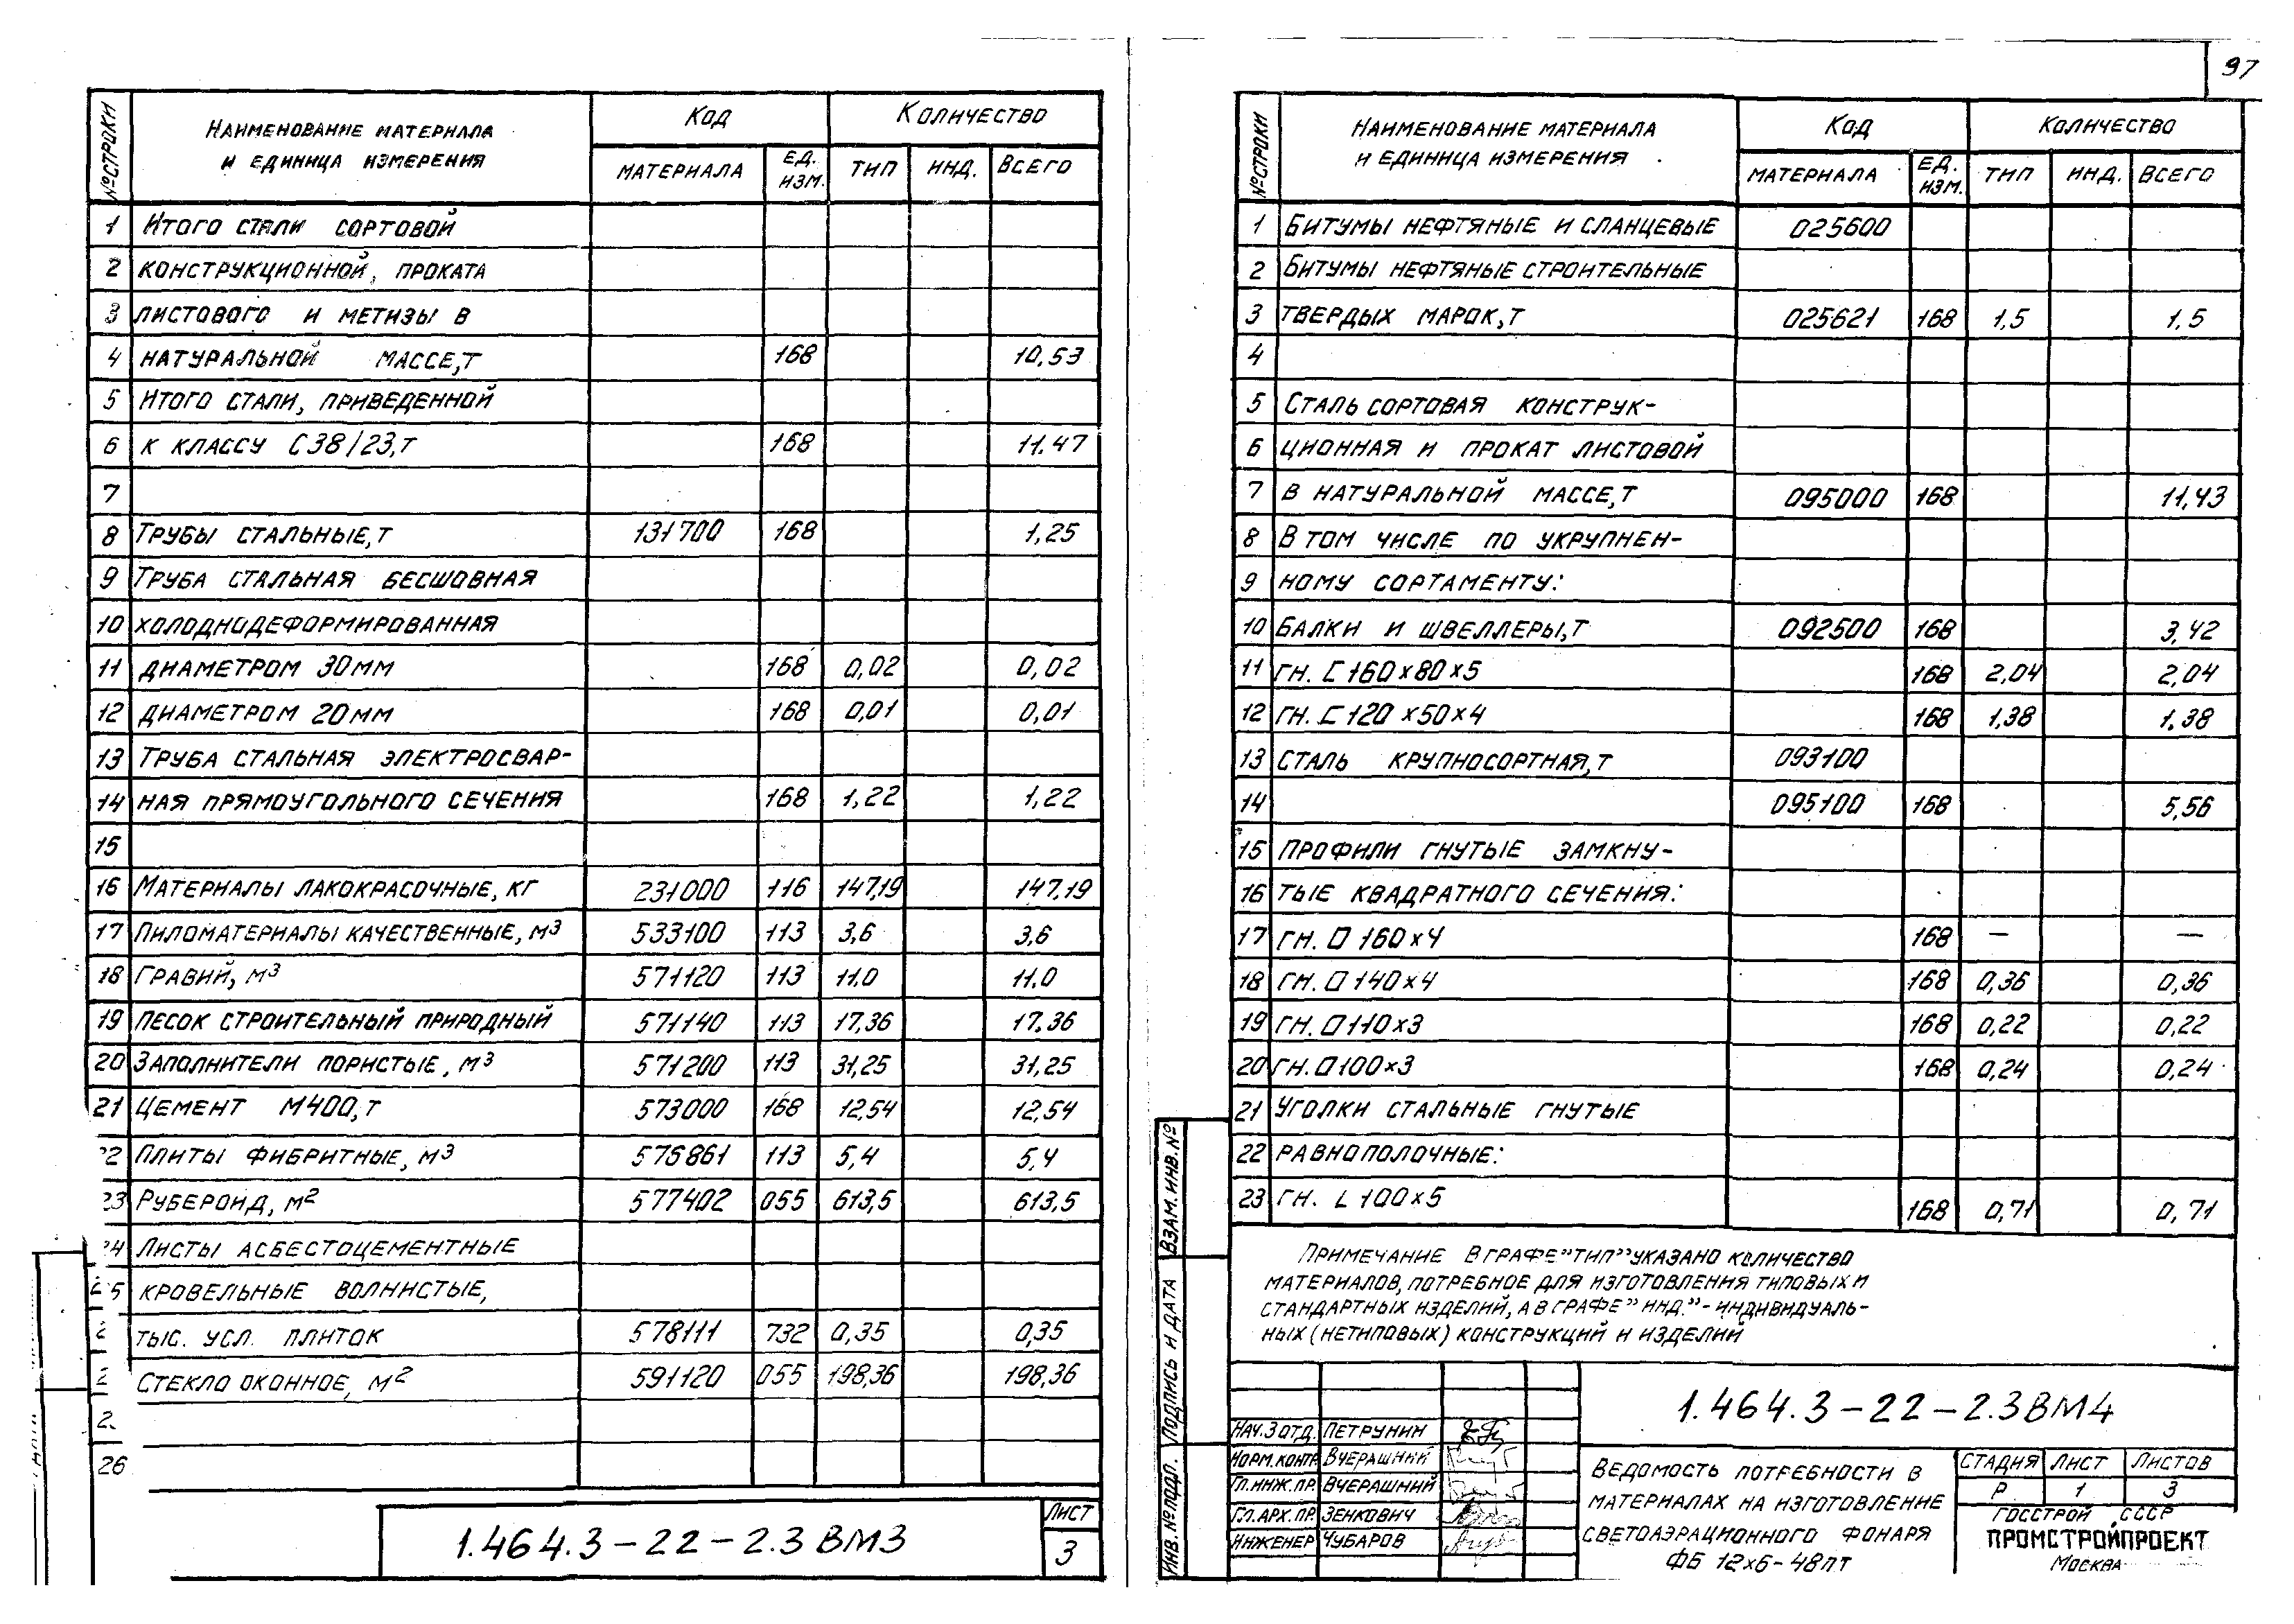 № СТРОКИ | НАИМЕНОВАНИЕ МАТЕРИАЛА И ЕДИНИЦА ИЗМЕРЕНИЯ | КОД | КОЛИЧЕСТВО
МАТЕРИАЛА | ЕД. ИЗМ. | ТИП | ИНД. | ВСЕГО
1 ИТОГО СТАЛИ СОРТОВОЙ
2 КОНСТРУКЦИОННОЙ, ПРОКАТА
3 ЛИСТОВОГО И МЕТИЗЫ В
4 НАТУРАЛЬНОЙ МАССЕ, Т 168 10,53
5 ИТОГО СТАЛИ, ПРИВЕДЕННОЙ
6 К КЛАССУ С38/23, Т 168 11.47
7
8 ТРУБЫ СТАЛЬНЫЕ, Т 131700 168 1,25
9 ТРУБА СТАЛЬНАЯ БЕСШОВНАЯ
10 ХОЛОДНОДЕФОРМИРОВАННАЯ
11 ДИАМЕТРОМ 30ММ 168 0,02 0,02
12 ДИАМЕТРОМ 20ММ 168 0,01 0,01
13 ТРУБА СТАЛЬНАЯ ЭЛЕКТРОСВАР-
14 НАЯ ПРЯМОУГОЛЬНОГО СЕЧЕНИЯ 168 1,22 1,22
15
16 МАТЕРИАЛЫ ЛАКОКРАСОЧНЫЕ, КГ 231000 116 147,19 147,19
17 ПИЛОМАТЕРИАЛЫ КАЧЕСТВЕННЫЕ, М3 533100 113 3,6 3,6
18 ГРАВИЙ, М3 571120 113 11,0 11,0
19 ПЕСОК СТРОИТЕЛЬНЫЙ ПРИРОДНЫЙ 571140 113 17,36 17.36
20 ЗАПОЛНИТЕЛИ ПОРИСТЫЕ, М3 571200 113 31,25 31,25
21 ЦЕМЕНТ М400, Т 573000 168 12,54 12,54
22 ПЛИТЫ ФИБРИТНЫЕ, М3 576861 113 5,4 5,4
23 РУБЕРОИД, М2 577402 055 613,5 613,5
24 ЛИСТЫ АСБЕСТОЦЕМЕНТНЫЕ
25 КРОВЕЛЬНЫЕ ВОЛНИСТЫЕ,
2 ТЫС. УСЛ. ПЛИТОК 578111 732 0,35 0,35
2 СТЕКЛО ОКОННОЕ, М2 591120 055 198,36 198,36
2
26
1.464.3-22-2.3 ВМ3
ЛИСТ
3
97
№ СТРОКИ | НАИМЕНОВАНИЕ МАТЕРИАЛА И ЕДИНИЦА ИЗМЕРЕНИЯ | КОД | КОЛИЧЕСТВО
МАТЕРИАЛА | ЕД. ИЗМ. | ТИП | ИНД. | ВСЕГО
1 БИТУМЫ НЕФТЯНЫЕ И СЛАНЦЕВЫЕ 025600
2 БИТУМЫ НЕФТЯНЫЕ СТРОИТЕЛЬНЫЕ
3 ТВЕРДЫХ МАРОК, Т 025621 168 1,5 1,5
4
5 СТАЛЬ СОРТОВАЯ КОНСТРУК-
6 ЦИОННАЯ И ПРОКАТ ЛИСТОВОЙ
7 В НАТУРАЛЬНОЙ МАССЕ, Т 095000 168 11,43
8 В ТОМ ЧИСЛЕ ПО УКРУПНЕН-
9 НОМУ СОРТАМЕНТУ:
10 БАЛКИ И ШВЕЛЛЕРЫ, Т 092500 168 3,42
11 ГН. [ 160×80×5 168 2,04 2,04
12 ГН. [ 120×50×4 168 1,38 1,38
13 СТАЛЬ КРУПНОСОРТНАЯ, Т 093100
14 095100 168 5,56
15 ПРОФИЛИ ГНУТЫЕ ЗАМКНУ-
16 ТЫЕ КВАДРАТНОГО СЕЧЕНИЯ:
17 ГН. □ 160×4 168 — —
18 ГН. □ 140×4 168 0,36 0,36
19 ГН. □ 110×3 168 0,22 0,22
20 ГН. □ 100×3 168 0,24 0,24
21 УГОЛКИ СТАЛЬНЫЕ ГНУТЫЕ
22 РАВНОПОЛОЧНЫЕ:
23 ГН. L 100×5 168 0,71 0,71
ПРИМЕЧАНИЕ В ГРАФЕ "ТИП" УКАЗАНО КОЛИЧЕСТВО
МАТЕРИАЛОВ, ПОТРЕБНОЕ ДЛЯ ИЗГОТОВЛЕНИЯ ТИПОВЫХ И
СТАНДАРТНЫХ ИЗДЕЛИЙ, А В ГРАФЕ "ИНД." - ИНДИВИДУАЛЬ-
НЫХ (НЕТИПОВЫХ) КОНСТРУКЦИЙ И ИЗДЕЛИЙ
ВЗАМ. ИНВ. №
ПОДПИСЬ И ДАТА
ИНВ. № ПОДЛ.
НАЧ. ЗОТД. ПЕТРУНИН
НОРМ. КОНТР ВЧЕРАШНИЙ
ГЛ. ИНЖ. ПР. ВЧЕРАШНИЙ
ГЛ. АРХ. ПР. ЗЕНКОВИЧ
ИНЖЕНЕР ЧУБАРОВ
1.464.3-22-2.3ВМ4
ВЕДОМОСТЬ ПОТРЕБНОСТИ В
МАТЕРИАЛАХ НА ИЗГОТОВЛЕНИЕ
СВЕТОАЭРАЦИОННОГО ФОНАРЯ
ФБ 12×6-48ПТ
СТАДИЯ ЛИСТ ЛИСТОВ
Р 1 3
ГОССТРОЙ СССР
ПРОМСТРОЙПРОЕКТ
МОСКВА